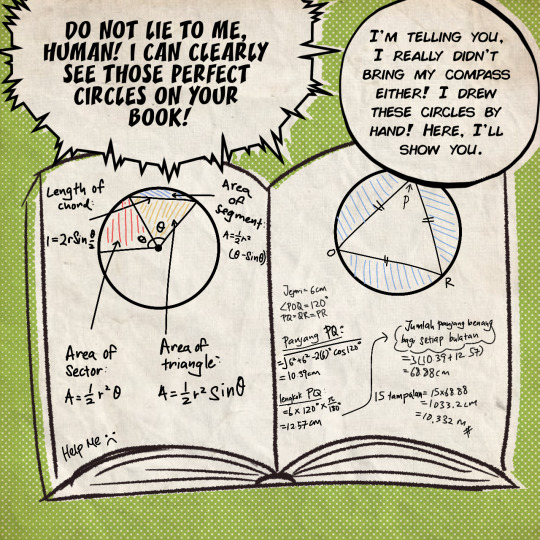 DO NOT LIE TO ME,
HUMAN! I CAN CLEARLY
SEE THOSE PERFECT
CIRCLES ON YOUR
BOOK!
I'M TELLING YOU,
I REALLY DIDN'T
BRING MY COMPASS
EITHER! I DREW
THESE CIRCLES BY
HAND! HERE, I'LL
SHOW YOU.
Length of
chord:
l=2rsin θ/2
Area
of
segment:
A=½r²
(θ-sinθ)
θ
θ
Area of
Sector:
A=½r²θ
Area of
triangle:
A=½r²sinθ
Help Me :(
P
O
R
Jejari=6cm
∠POQ=120°
PQ=QR=PR
Panjang PQ:
=√6²+6²-2(6)² cos120°
=10.39cm
lengkok PQ:
=6×120°×π/180°
=12.57cm
Jumlah panjang benang
bagi setiap bulatan
=3(10.39+12.57)
=68.88cm
15 tampalan=15×68.88
=1033.2cm
=10.332m